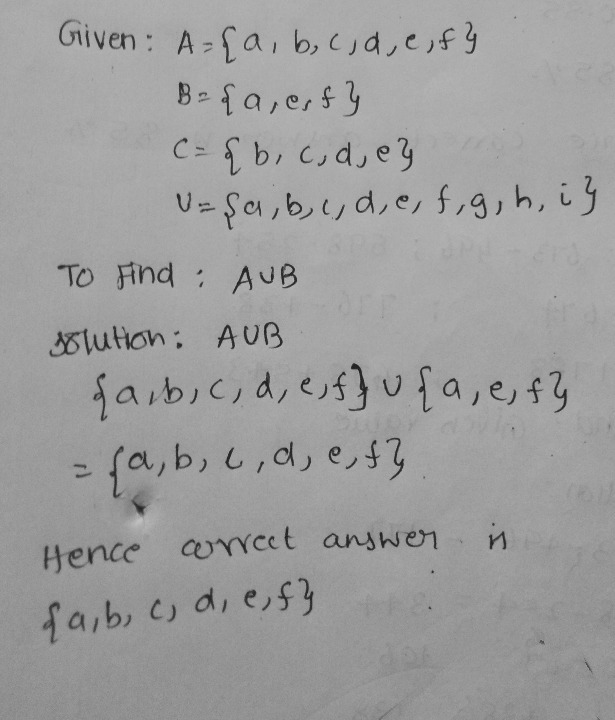 Given: A={a, b, c, d, e, f}
B={a, e, f}
C={b, c, d, e}
U={a, b, c, d, e, f, g, h, i}
To Find: A∪B
Solution: A∪B
{a, b, c, d, e, f} ∪ {a, e, f}
= {a, b, c, d, e, f}
Hence correct answer is
{a, b, c, d, e, f}